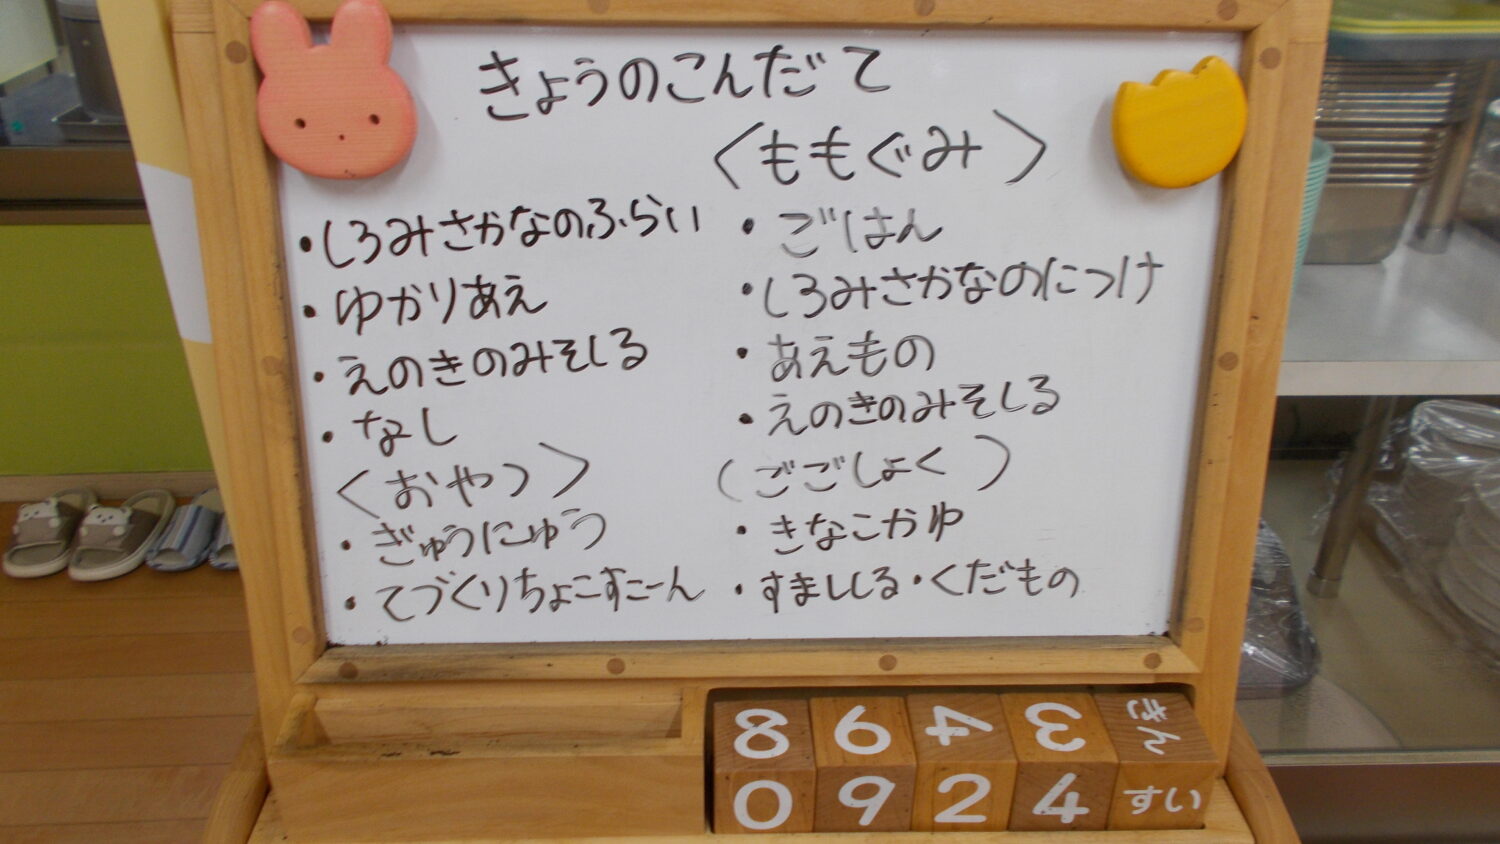 きょうのこんだて
・しろみさかなのふらい
・ゆかりあえ
・えのきのみそしる
・なし
〈おやつ〉
・ぎゅうにゅう
・てづくりちょこすこーん
〈ももぐみ〉
・ごはん
・しろみさかなのにつけ
・あえもの
・えのきのみそしる
(ごごしょく)
・きなこかゆ
・すましじる・くだもの
8 6 4 3 きん
0 9 2 4 すい